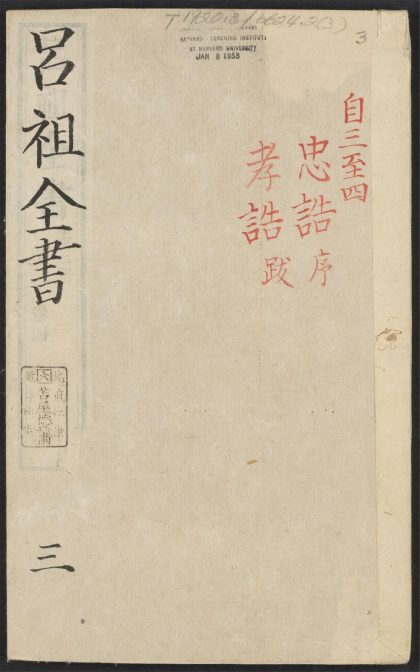 T 1920.3/6624.2(3)
HARVARD-YENCHING INSTITUTE
AT HARVARD UNIVERSITY
JAN 8 1953
3
自三至四
忠誥序
孝誥跋
呂祖全書
三